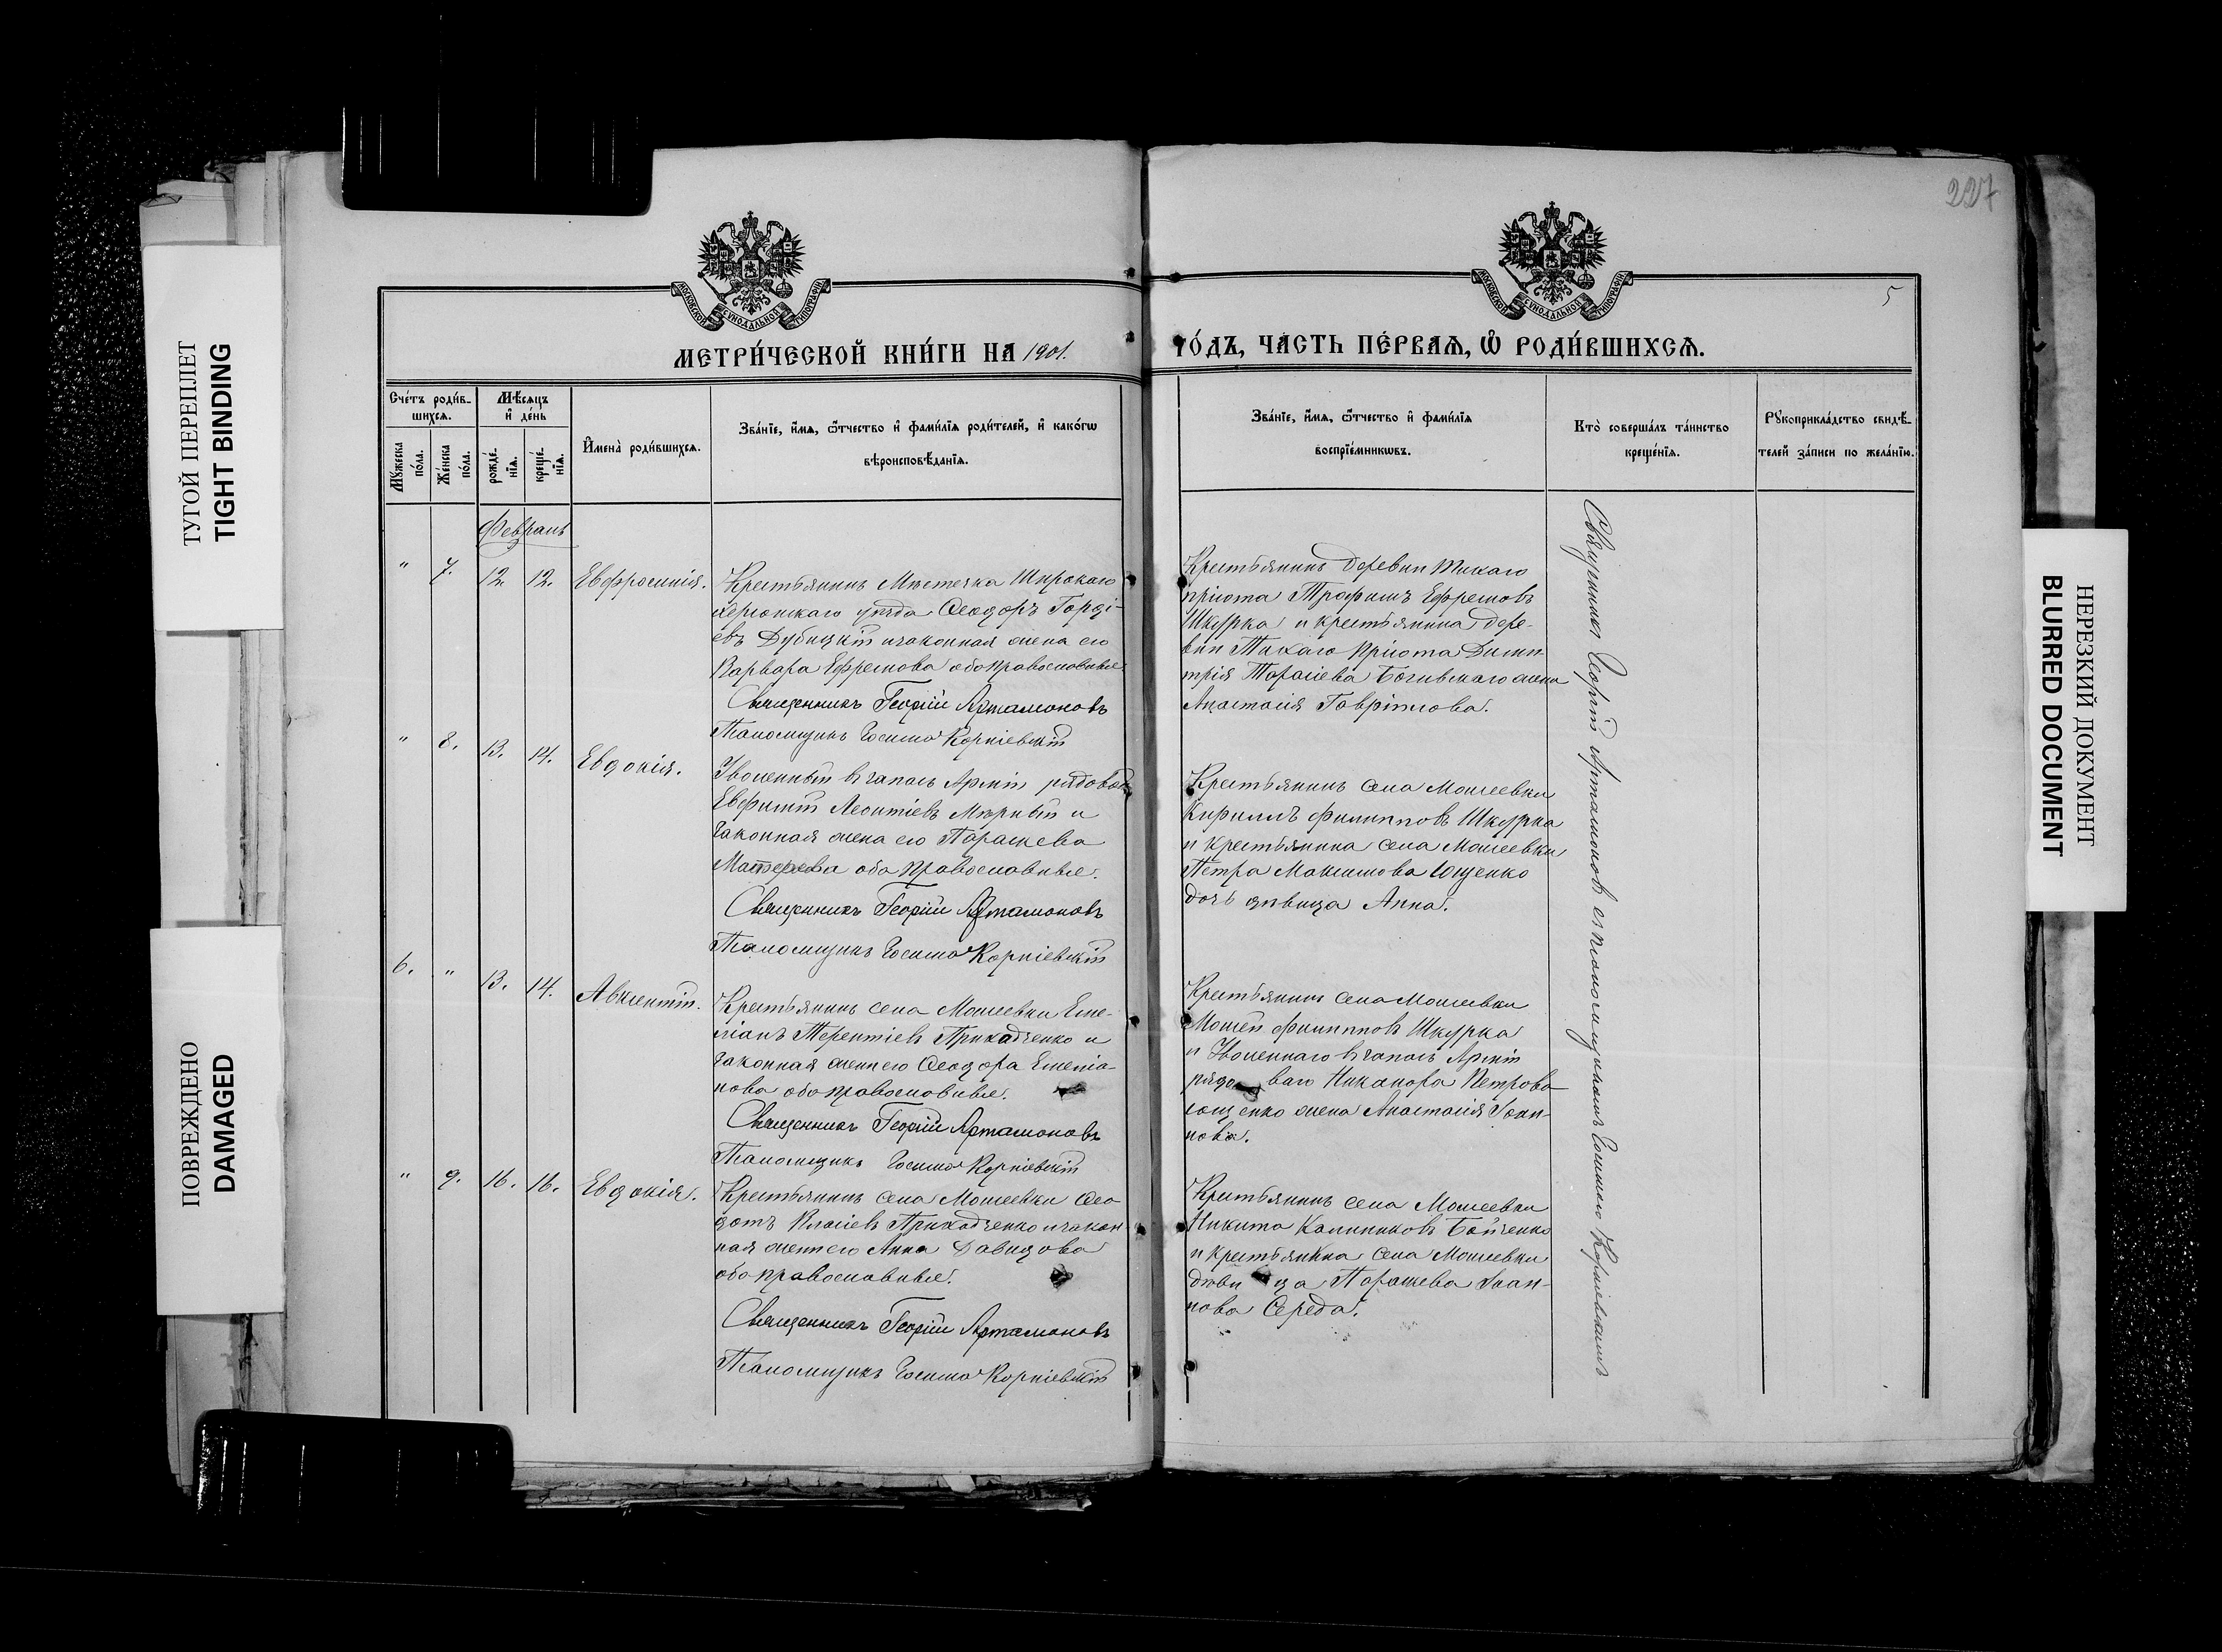 227
5
МОСКОВСКОЙ СУНОДАЛЬНОЙ ТИПОГРАФІИ
МОСКОВСКОЙ СУНОДАЛЬНОЙ ТИПОГРАФІИ
МЕТРИ́ЧЕСКОЙ КНИ́ГИ НА 1901.
ГО́ДЪ, ЧА́СТЬ ПЕ́РВАЯ, Ѽ РОДИ́ВШИХСЯ.
Сче́тъ роди́в-
шихся.
Мꙋ́жеска
по́ла.
Же́нска
по́ла.
Мѣ́сяцъ
и҆ де́нь
рожде́-
нїя.
креще́-
нїя.
И҆мена̀ роди́вшихся.
Зва́нїе, и҆́мя, ѻ҆́тчество и҆ фами́лїя роди́телей, и҆ како́гѡ
вѣроисповѣ́данїя.
Зва́нїе, и҆́мя, ѻ҆́тчество и҆ фами́лїя
воспрїе́мникѡвъ.
Кто̀ соверша́лъ та́инство
креще́нїя.
Рꙋкоприкла́дство свидѣ́-
телей за́писи по жела́нїю.
Февраль
" 7. 12. 12. Евфросинія.
Крестьянинъ Мѣстечка Широкаго
Херсонскаго уѣзда Ѳеодоръ Горді-
евъ Дубицкій и законная жена его
Варвара Ефремова оба православные
Священникъ Георгій Артамоновъ
Псаломщикъ Зосима Корніевскій
Крестьянинъ деревни Тихаго
пріюта Трофимъ Ефремовъ
Шкурка и крестьянина дере-
вни Тихаго Пріюта Дими-
трія Тарасіева жена
Анастасія Гавріилова.
" 8. 13. 14. Евдокія.
Уволенный въ запасъ Арміи рядовой
Евфимій Леонтіевъ Мѣрный и
законная жена его Параскева
Матѳеева оба православные.
Священникъ Георгій Артамоновъ
Псаломщикъ Зосима Корніевскій
Крестьянинъ села Моисеевки
Кириллъ Филипповъ Шкурка
и крестьянина села Моисеевки
Петра Максимова Ющенко
дочь дѣвица Анна.
6. " 13. 14. Авксентій.
Крестьянинъ села Моисеевки Еме-
ліанъ Терентіевъ Приходченко и
законная жена его Ѳеодора Емеліа-
нова оба православные.
Священникъ Георгій Артамоновъ
Псаломщикъ Зосима Корніевскій
Крестьянинъ села Моисеевки
Моисей Филипповъ Шкурка
и Уволеннаго въ запасъ Арміи
рядоваго Никанора Петрова
Ющенко жена Анастасія Іоан-
нова.
" 9. 16. 16. Евдокія.
Крестьянинъ села Моисеевки Ѳео-
дотъ Власіевъ Приходченко и закон-
ная жена его Анна Давидова
оба православные.
Священникъ Георгій Артамоновъ
Псаломщикъ Зосима Корніевскій
Крестьянинъ села Моисеевки
Никита Калинниковъ Бойченко
и крестьянка села Моисеевки
дѣвица Параскева Іоан-
нова Середа.
Священникъ Георгій Артамоновъ съ псаломщикомъ Зосимою Корніевскимъ
ТУГОЙ ПЕРЕПЛЕТ
TIGHT BINDING
ПОВРЕЖДЕНО
DAMAGED
НЕРЕЗКИЙ ДОКУМЕНТ
BLURRED DOCUMENT